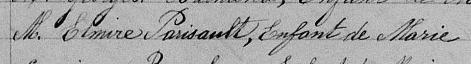 M. Elmire Parisault, Enfant de Marie